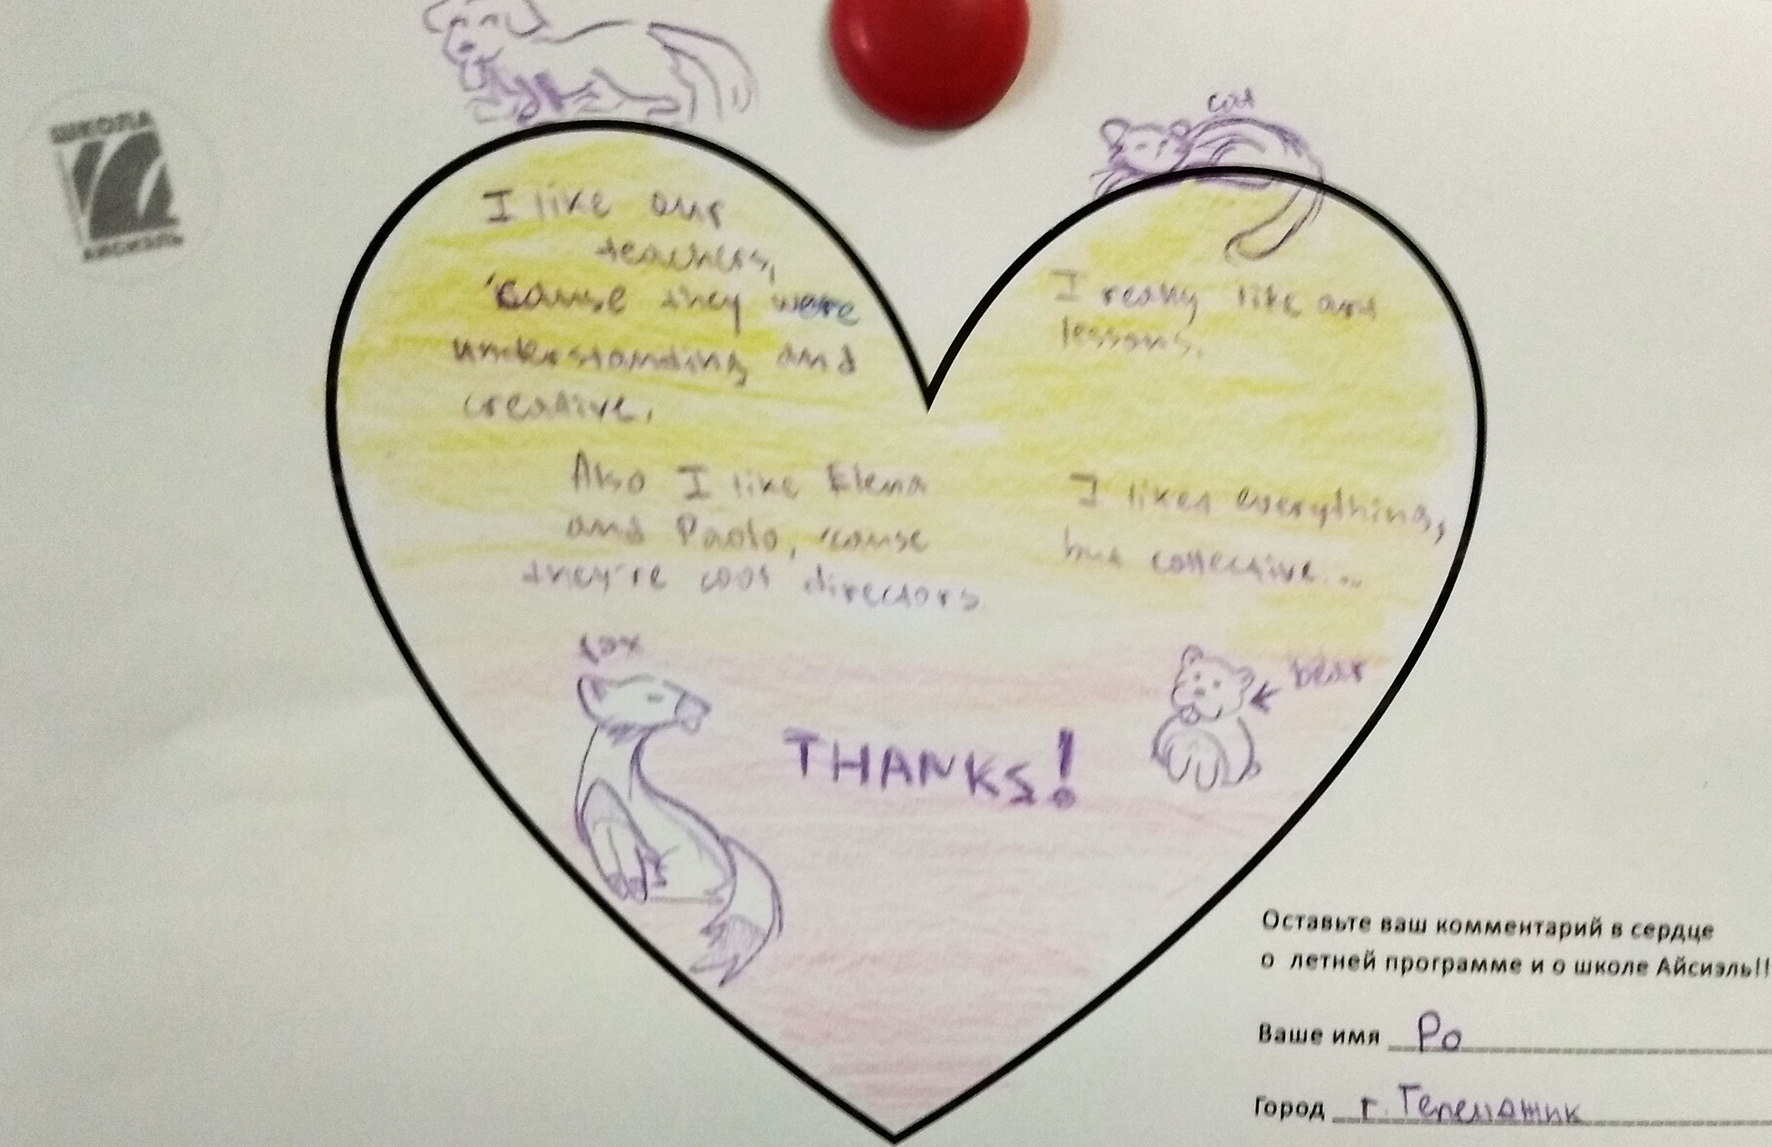 ШКОЛА
АЙСИЭЛЬ
cat
I like our
teachers,
'cause they were
understanding and
creative.
Also I like Elena
and Paolo, 'cause
they're cool directors
I really like art
lessons.
I liked everything,
but collective...
fox
bear
THANKS!
Оставьте ваш комментарий в сердце
о летней программе и о школе Айсиэль!!
Ваше имя Ро
Город г.